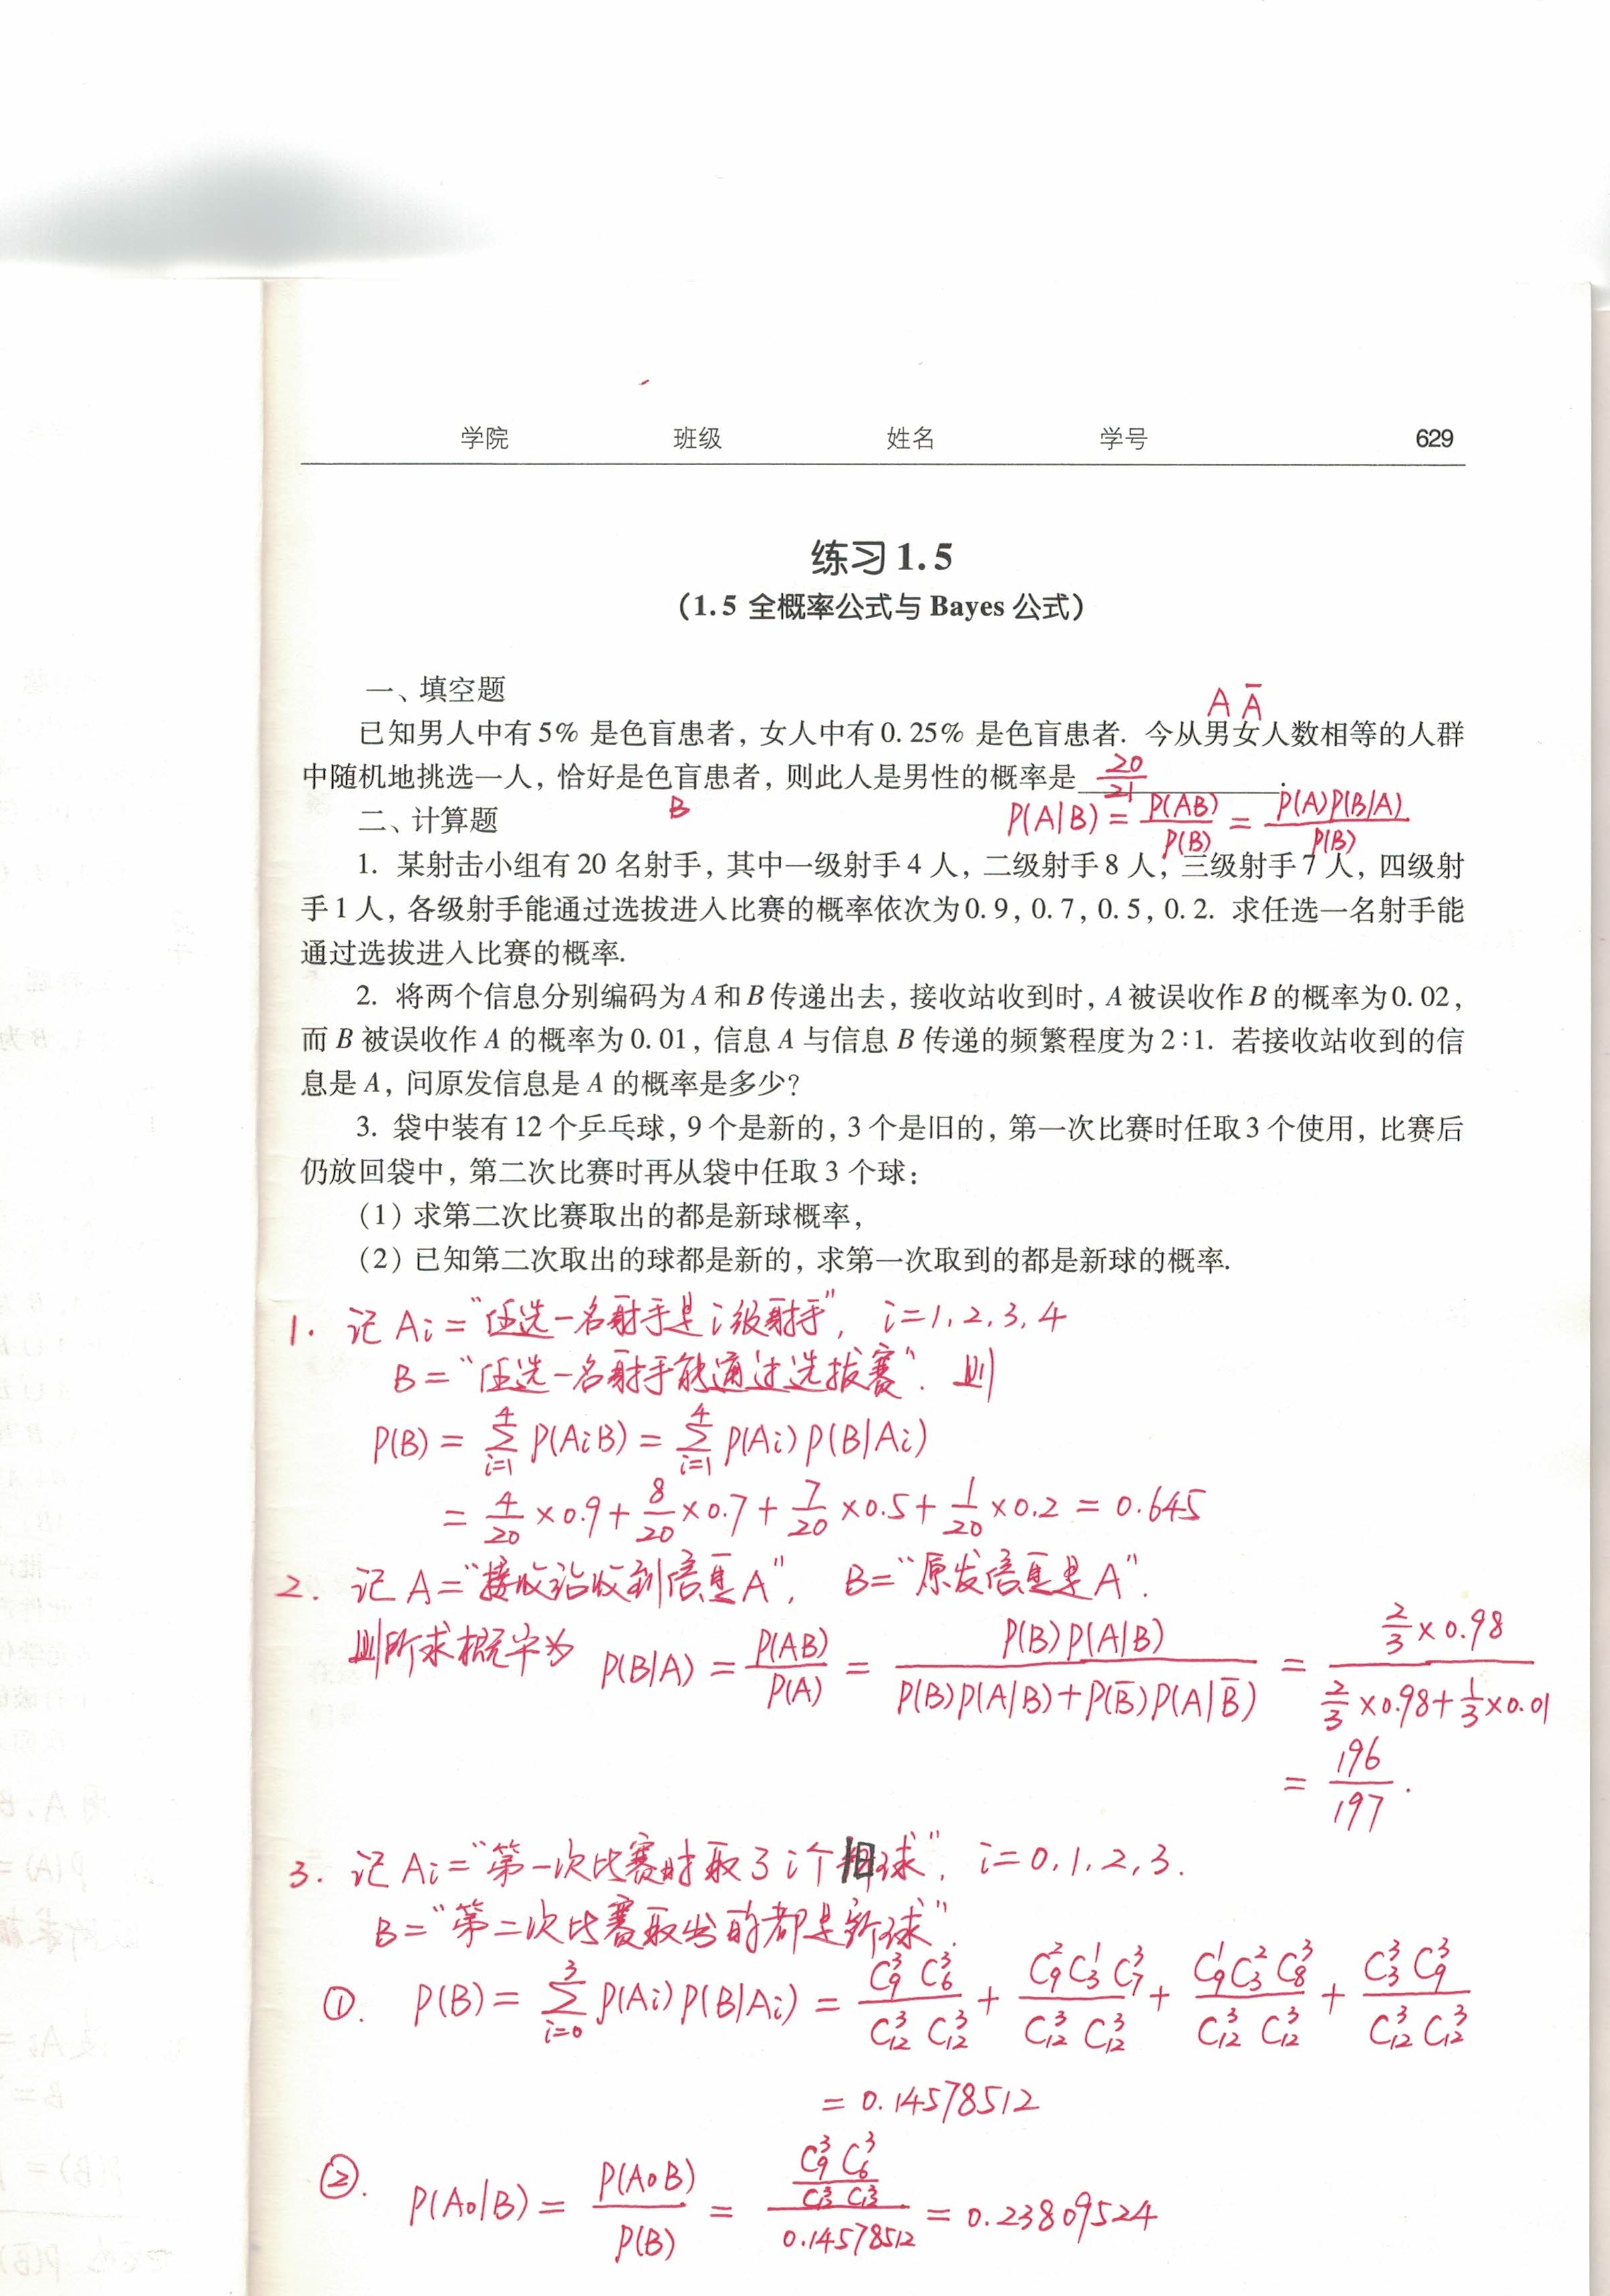 学院 班级 姓名 学号 629
练习1.5
(1.5 全概率公式与 Bayes 公式)
一、填空题
A Ā
已知男人中有5% 是色盲患者, 女人中有0.25% 是色盲患者. 今从男女人数相等的人群
中随机地挑选一人, 恰好是色盲患者, 则此人是男性的概率是 20/21 .
B
二、计算题
P(A|B) = P(AB)/P(B) = P(A)P(B|A)/P(B)
1. 某射击小组有 20 名射手, 其中一级射手 4 人, 二级射手 8 人, 三级射手 7 人, 四级射
手 1 人, 各级射手能通过选拔进入比赛的概率依次为0.9, 0.7, 0.5, 0.2. 求任选一名射手能
通过选拔进入比赛的概率.
2. 将两个信息分别编码为 A 和 B 传递出去, 接收站收到时, A 被误收作 B 的概率为0.02,
而 B 被误收作 A 的概率为0.01, 信息 A 与信息 B 传递的频繁程度为 2∶1. 若接收站收到的信
息是 A, 问原发信息是 A 的概率是多少?
3. 袋中装有 12 个乒乓球, 9 个是新的, 3 个是旧的, 第一次比赛时任取 3 个使用, 比赛后
仍放回袋中, 第二次比赛时再从袋中任取 3 个球:
(1) 求第二次比赛取出的都是新球概率,
(2) 已知第二次取出的球都是新的, 求第一次取到的都是新球的概率.
1. 记 Ai = “任选一名射手是 i 级射手”, i = 1, 2, 3, 4
B = “任选一名射手能通过选拔赛”. 则
P(B) = ∑_{i=1}^{4} P(AiB) = ∑_{i=1}^{4} P(Ai) P(B|Ai)
= 4/20 × 0.9 + 8/20 × 0.7 + 7/20 × 0.5 + 1/20 × 0.2 = 0.645
2. 记 A = “接收站收到信息A”, B = “原发信息是A”.
则所求概率为 P(B|A) = P(AB)/P(A) = P(B)P(A|B)/(P(B)P(A|B)+P(B̄)P(A|B̄)) = (2/3 × 0.98)/(2/3 × 0.98 + 1/3 × 0.01)
= 196/197 .
3. 记 Ai = “第一次比赛时取了 i 个旧球”, i = 0, 1, 2, 3.
B = “第二次比赛取出的都是新球”.
①. P(B) = ∑_{i=0}^{3} P(Ai) P(B|Ai) = C_9^3 C_6^3/(C_12^3 C_12^3) + C_9^2 C_3^1 C_7^3/(C_12^3 C_12^3) + C_9^1 C_3^2 C_8^3/(C_12^3 C_12^3) + C_3^3 C_9^3/(C_12^3 C_12^3)
= 0.14578512
②. P(A0|B) = P(A0B)/P(B) = (C_9^3 C_6^3/(C_12^3 C_12^3))/0.14578512 = 0.23809524